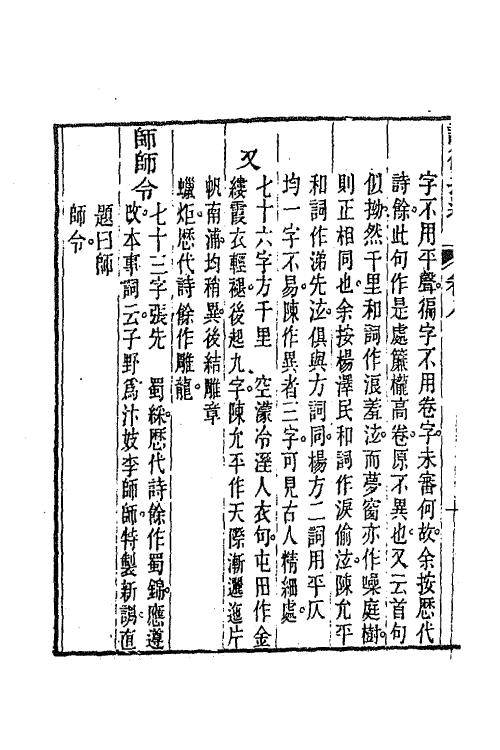 字不用平聲徧字不用卷字未審何故余按歷代
詩餘此句作是處簾櫳高卷原不異也又云首句
似拗然千里和詞作浪羞泫而夢窗亦作噪庭樹
則正相同也余按楊澤民和詞作淚偷泫陳允平
和詞作涕先泫俱與方詞同楊方二詞用平仄
均一字不易陳作異者三字可見古人精細處
又
七十六字方千里　空濛冷溼人衣句屯田作金
縷霞衣輕褪後起九字陳允平作天際漸邐迤片
帆南浦均稍異後結雕章
蠟炬歷代詩餘作雕龍
師師令
七十三字張先　蜀綵歷代詩餘作蜀錦應遵
改本事詞云子野爲汴妓李師師特製新調直
題曰師
師令